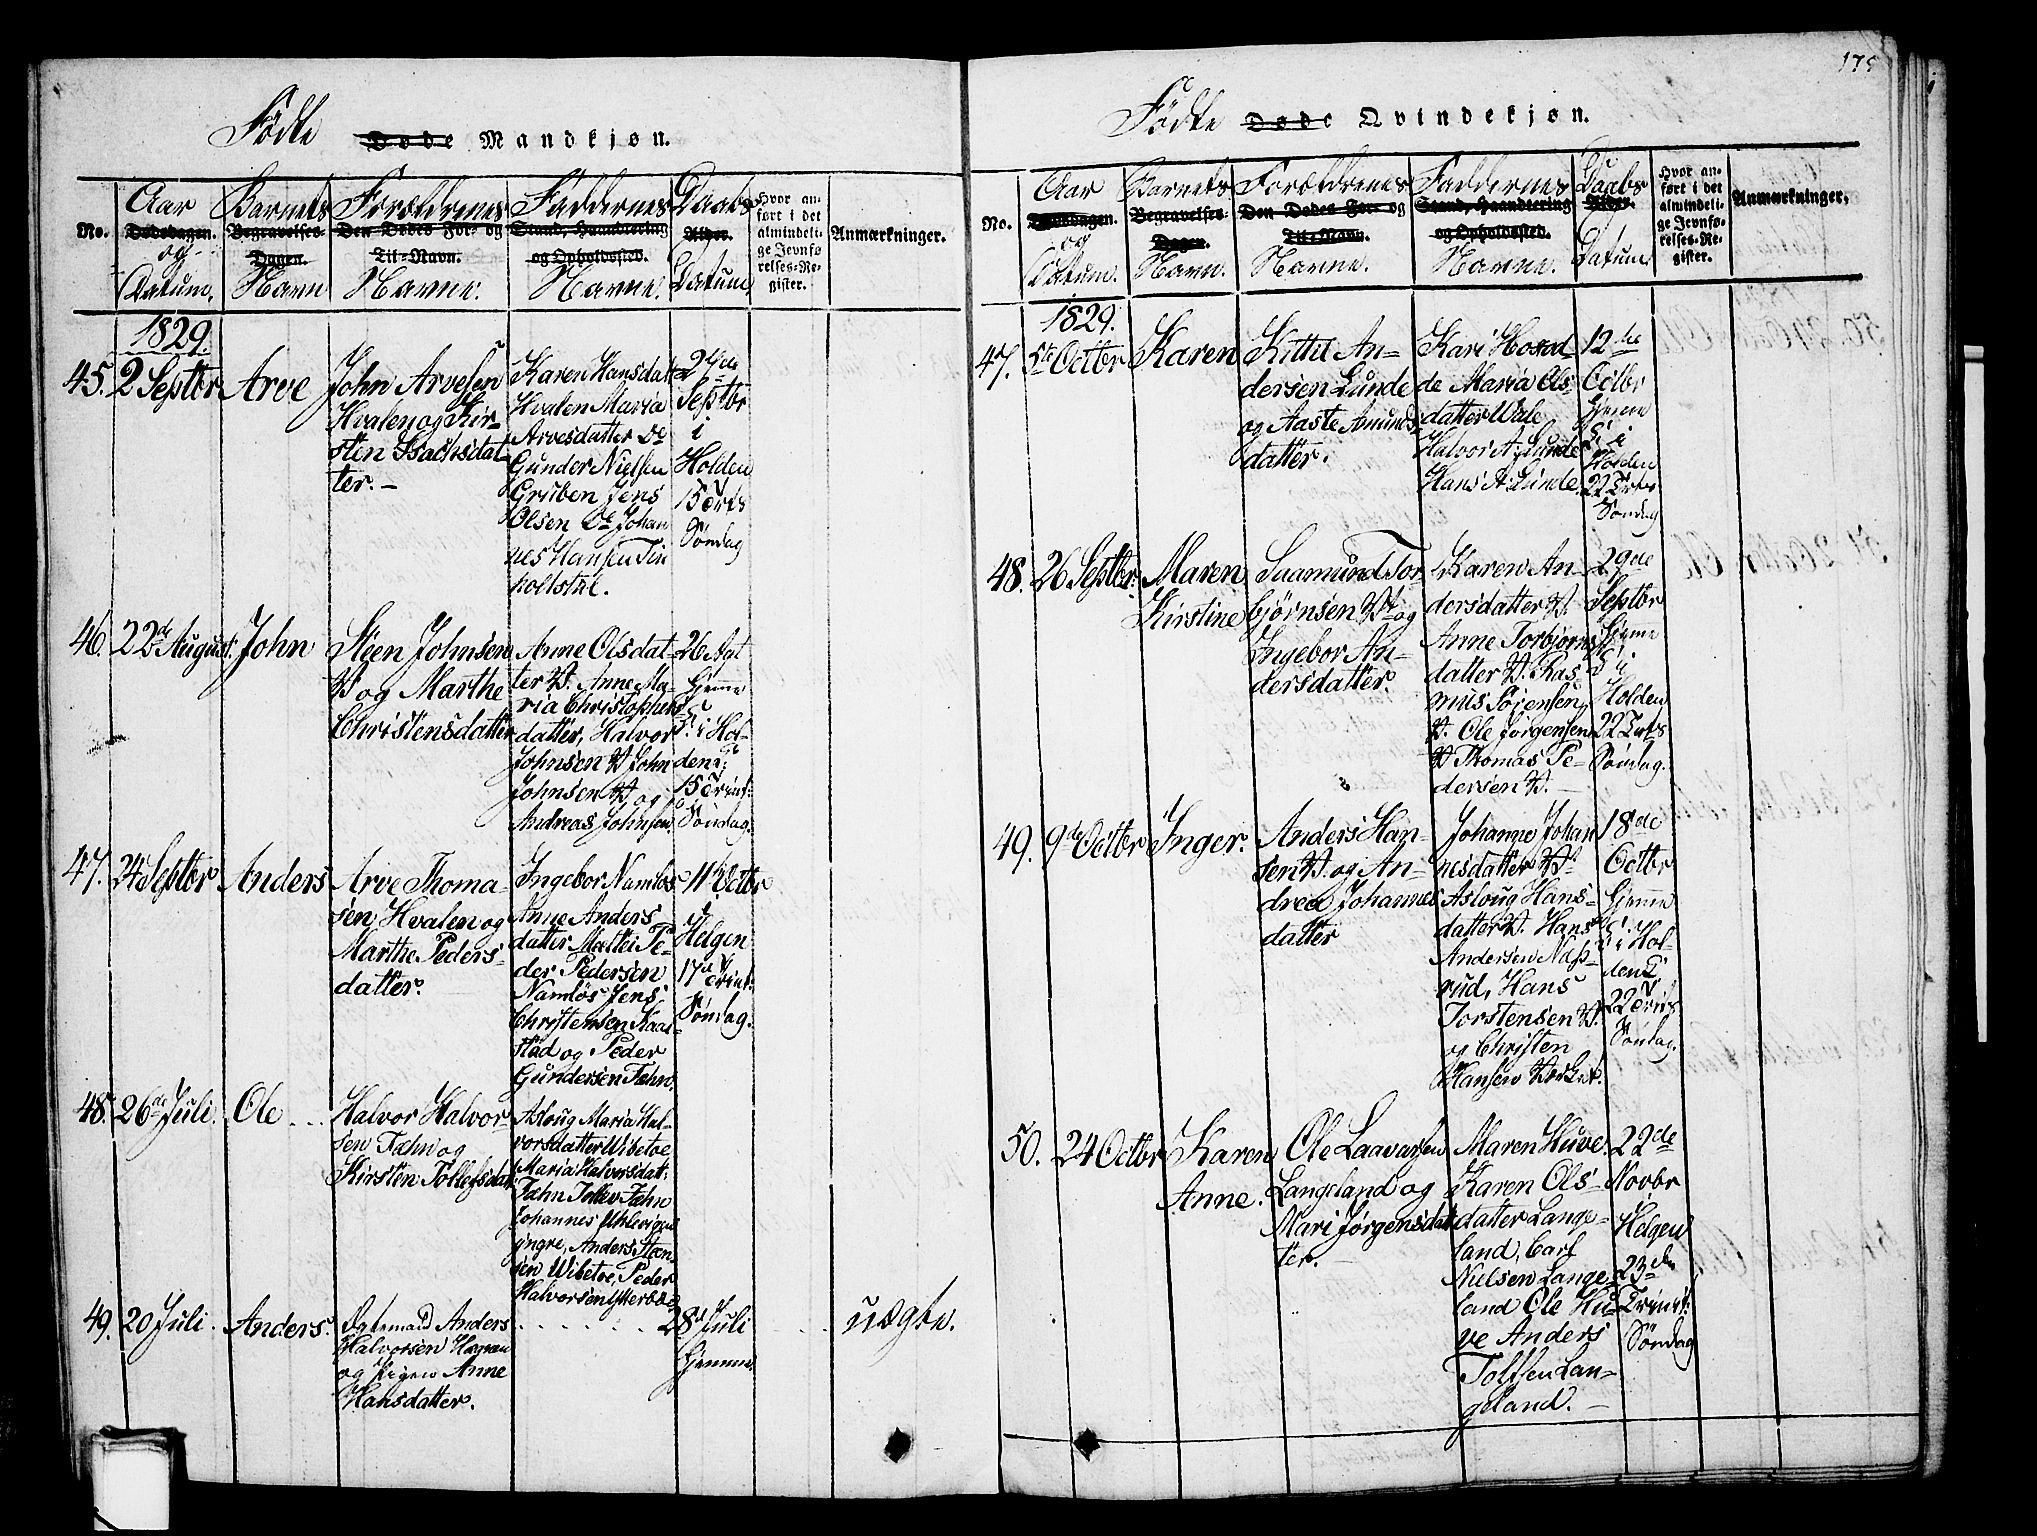 Födte Døde Mandkjøn.
No.
Aar
Dødsdagen.
og
Datum.
Barnets
Begravelses-
Dagen.
Navn
Forældrenes
Den Dødes For- og
Til-Navn.
Navne.
Faddernes
Stand, Haandtering
og Opholdssted.
Navne.
Daabs
Alder.
Datum
Hvor an-
ført i det
almindeli-
ge Jevnfø-
relses-Re-
gister.
Anmærkninger.
1829.
45. 2 Septbr
Arve
John Arvesen
Hvalen og Kir-
sten Isachsdat-
ter. –
Karen Hansdat
Hvalen Maria
Arvesdatter
Gunder Nielsen
Gruben Jens
Olsen Johan
nes Hansen Tin
holtstal.
27de
Septbr
i
Holden
15 Trts
Söndag
46. 22de August.
John
Steen Johnsen
og Marthe
Christensdatter
Anne Olsdat-
ter Anne Ma-
ria Christophers
datter, Halvor
Johnsen John
Johnsen og
Andreas Johnsen
26 Agt
Hjemme
i Hol-
den
15 Trinit:
Söndag.
47. 24 Septbr
Anders
Arve Thoma-
sen Hvalen og
Marthe Peders-
datter.
Ingebor Namlös
Anne Anders
datter Pe-
der Pedersen
Namlös Jens
Christensen Kaas-
stad og Peder
Gundersen Fæhn.
11te Octbr
i
Helgen
17de Trinit:
Söndag.
48. 26de Juli.
Ole
Halvor Halvor-
sen Fæhn og
Kirsten Tollefsdat
Aslaug Maria Hal-
vorsdatter Wibetoe
Maria Halvorsdat:
Fæhn Tollev Fæhn
Johannes
yngre, Anders Steen
sen Wibetoe, Peder
Halvorsen Ytterböe
49. 20 Juli.
Anders.
Anders
Halvorsen
og Pigen Anne
Hansdatter.
28de Juli
Hjemme
uægte.
175
Födte Døde Qvindekjøn.
No.
Aar
Dødsdagen.
og
Datum.
Barnets
Begravelses-
Dagen.
Navn.
Forældrenes
Den Dødes For- og
Til-Navn.
Navne.
Faddernes
Stand, Haandtering
og Opholdssted.
Navne.
Daabs
Alder.
Datum
Hvor an-
ført i det
almindeli-
ge Jevnfø-
relses-Re-
gister.
Anmærkninger,
1829.
47. 5te Octbr
Karen
Kittil An-
dersen Lunde
og Aaste Amunds
datter.
Kari
de Maria Ols-
datter
Halvor A. Lunde
Hans A. Lunde.
12te
Octbr
Hjeme
i
Holden
22 Trts
Söndag
48. 26 Septbr.
Maren
Kirstine
Saamund Tor-
bjørnsen og
Ingebor An-
dersdatter.
Karen An-
dersdatter
Anne Torbjörns
datter Ras-
mus
Ole Jörgensen
Thomas Pe-
dersen
29de
Septbr
Hjeme
i
Holden
22 Trts
Söndag.
49. 9de Octbr
Inger.
Anders Han-
sen og An-
drea Johannes
datter
Johanne Johan
nesdatter
Aslaug Hans-
datter Hans
Andersen Næs-
rud, Hans
Torstensen
og Christen
Hansen
18de
Octbr
Hjemme
i Hol-
den
22 Trits
Söndag.
50. 24 Octbr
Karen
Anne.
Ole Laavarsen
Langeland og
Mari Jörgensdat
ter.
Maren Huve
Karen Ols-
datter Lange-
land, Carl
Nielsen Lange-
land Ole Hu-
ve Anders
Lan-
geland. –
22de
Novbr
Helgen
23de
Trinit:
Söndag